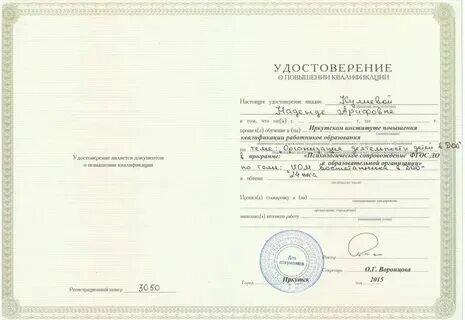 Удостоверение является документом
о повышении квалификации
Регистрационный номер 3050
УДОСТОВЕРЕНИЕ
О ПОВЫШЕНИИ КВАЛИФИКАЦИИ
Настоящее удостоверение выдано Кулиевой
Надежде Арифовне
в том, что он(а) с
прошёл(а) обучение в (на) Иркутском институте повышения
квалификации работников образования
по теме: "Организация деятельности детей в ДОО"
в программе: «Психологическое сопровождение ФГОС ДО
в образовательной организации»
по теме: "ИОМ воспитанника в ДОО"
в объёме "24 часа
Прошел(а) стажировку в (на)
выполнил(а) итоговую работу
Для
документов
Ректор
Секретарь О.Г. Воронцова
Город Иркутск 2015